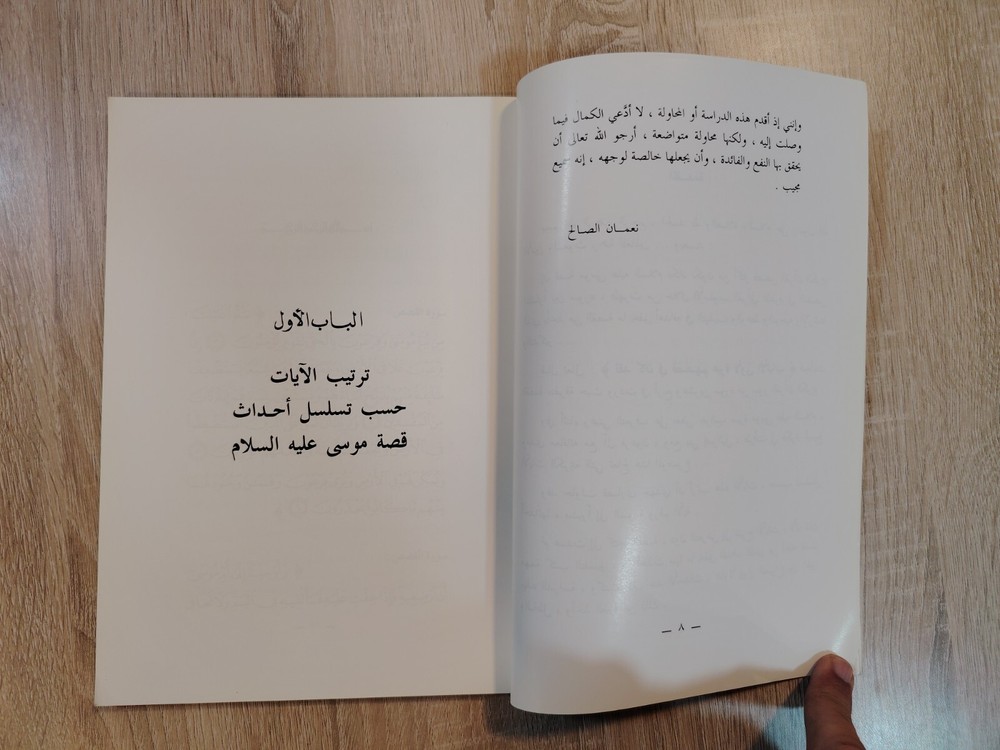 وإنني إذ أقدم هذه الدراسة أو المحاولة ، لا أدَّعي الكمال فيما
وصلت إليه ، ولكنها محاولة متواضعة ، أرجو الله تعالى أن
يحقق بها النفع والفائدة ، وأن يجعلها خالصة لوجهه ، إنه سميع
مجيب .
نعمـان الصـالح
— ٨ —
الباب الأول
ترتيب الآيات
حسب تسلسل أحـداث
قصة موسى عليه السلام